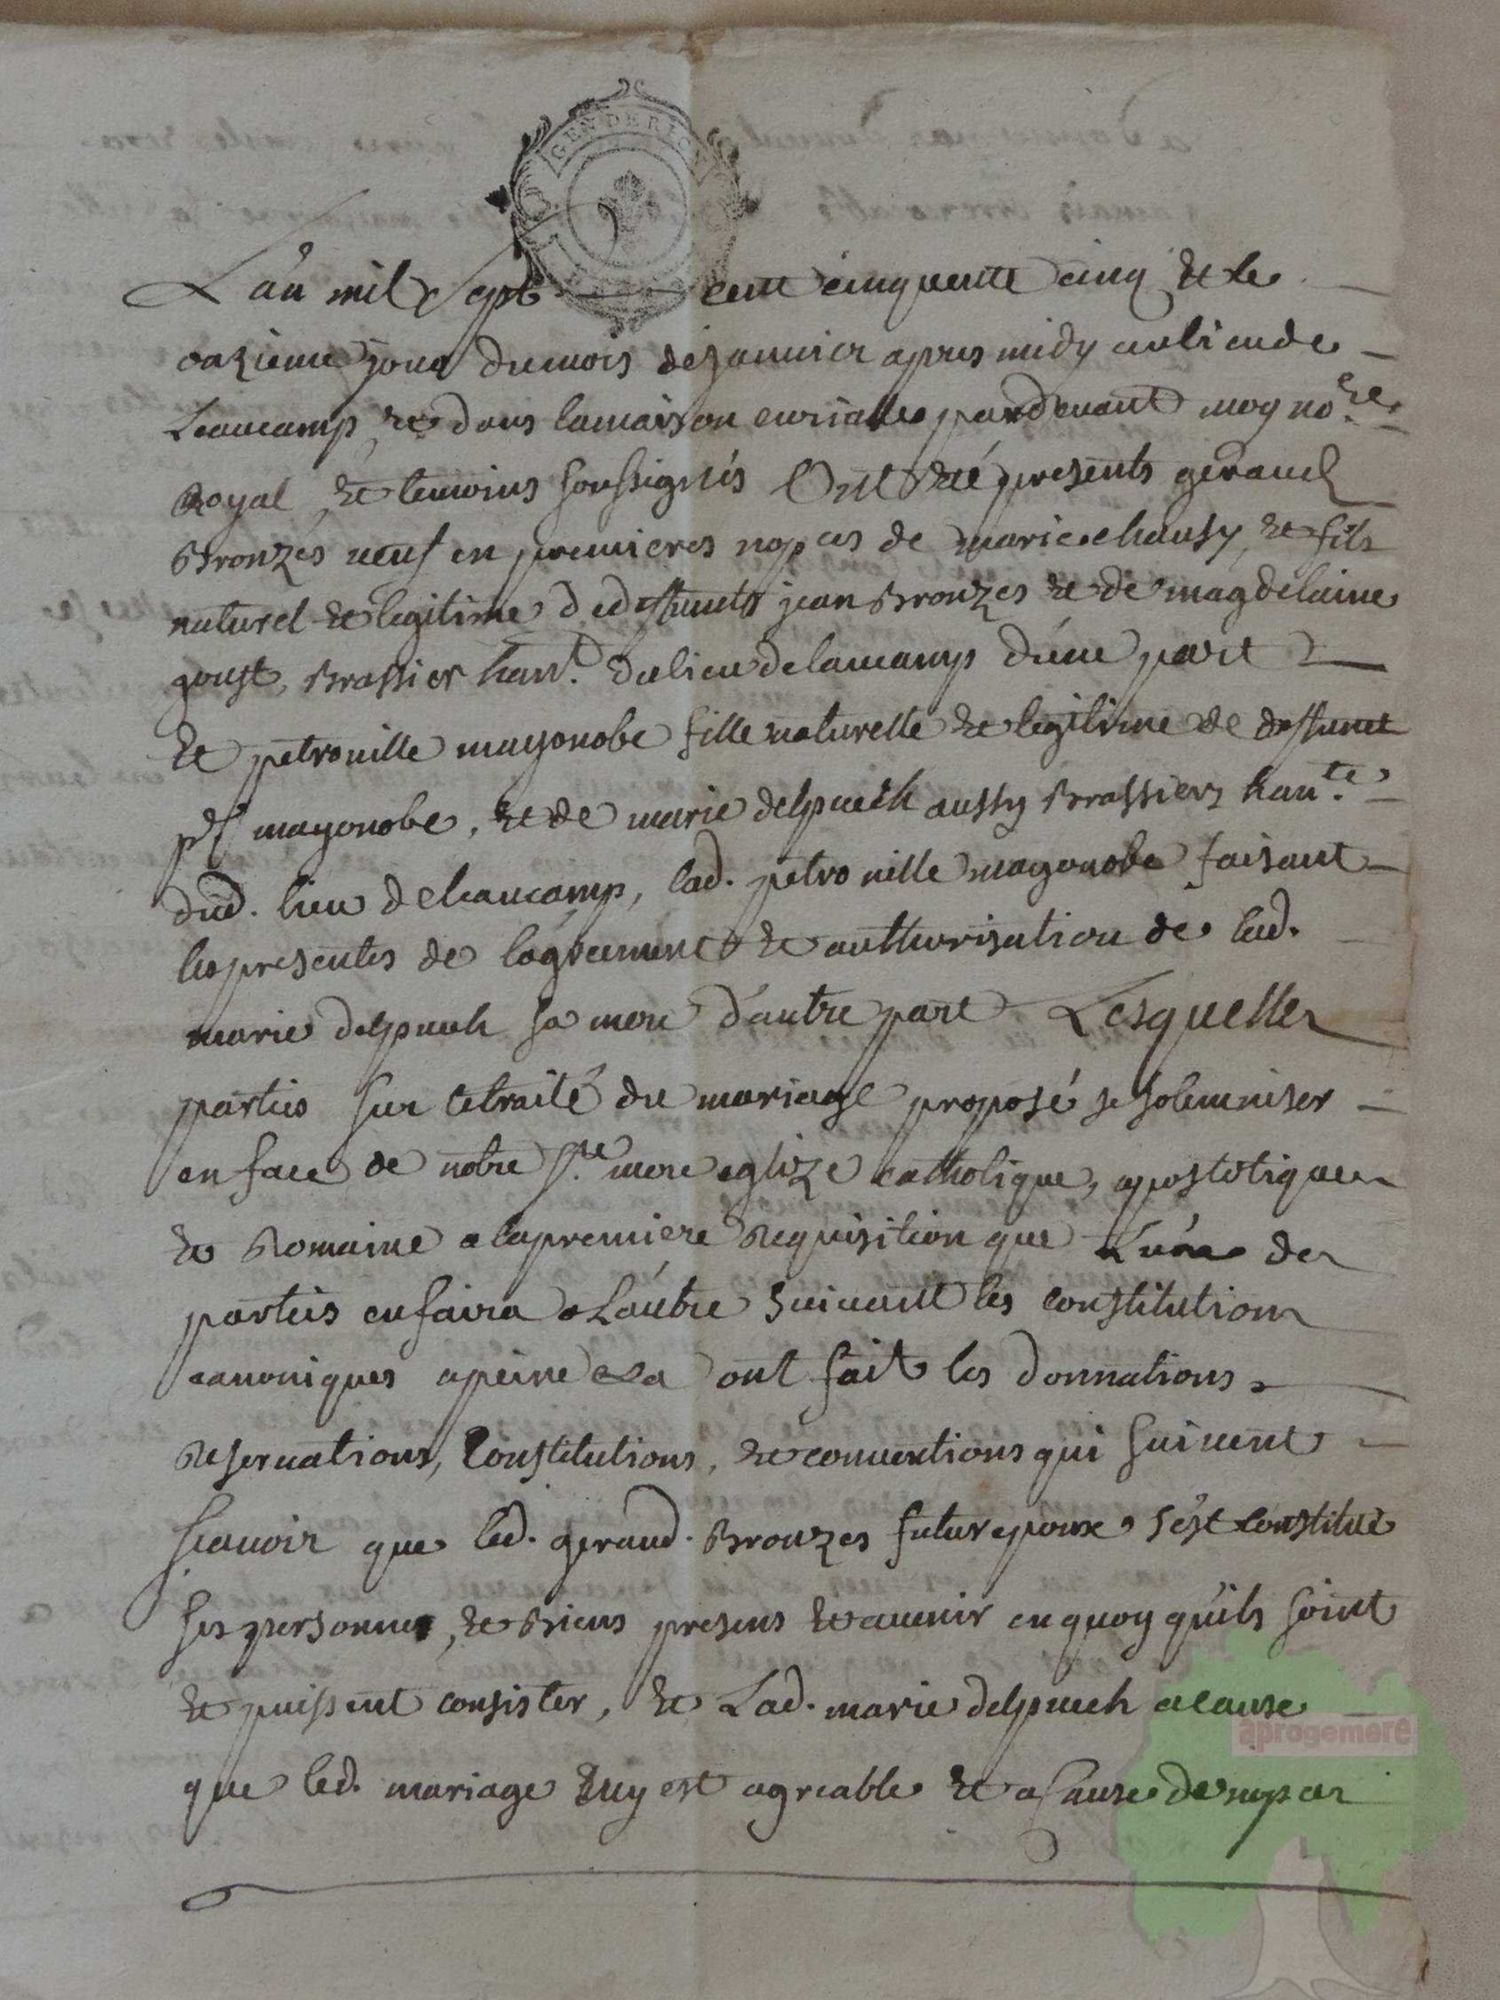 GEN DE RIOM
L'an mil sept cent cinquente cinq et le
onzieme jour du mois de janvier apres midy au lieu de
Leaucamp, et dans la maison curialle pardevant moy no.re
Royal, et temoins soussignés Ont été presents geraud
Bronzes veuf en premieres nopces de marie chausy, et fils
naturel et legitime de deffunts jean Bronzes et de magdelaine
goust, Brassier han.t du lieu de laucamp d'une part
Et petronille mayonobe fille naturelle et legitime de deffunt
p.r mayonobe, et de marie delpuech aussy Brassiers han.te
dud. lieu de leaucamp, lad. petronille mayonobe faisant
les presentes de l'agreement et authorisation de lad.
marie delpuech sa mere d'autre part Lesquelles
parties sur le traité du mariage proposé se solemniser
en face de notre s.te mere eglize catholique, apostolique
et Romaine a la premiere Requisition que L'une des
parties en faira a L'autre suivant les constitutions
canoniques a peine &a ont fait les donnations
Reservations, Constitutions, et conventions qui suivent
scavoir que led. geraud Bronzes futur epoux s'est constitué
ses personne, et Biens presens et avenir en quoy qu'ils soint
et puissent consister, et Lad. marie delpuech a cause
que led. mariage luy est agreable et a cause de nopces
aprogemere